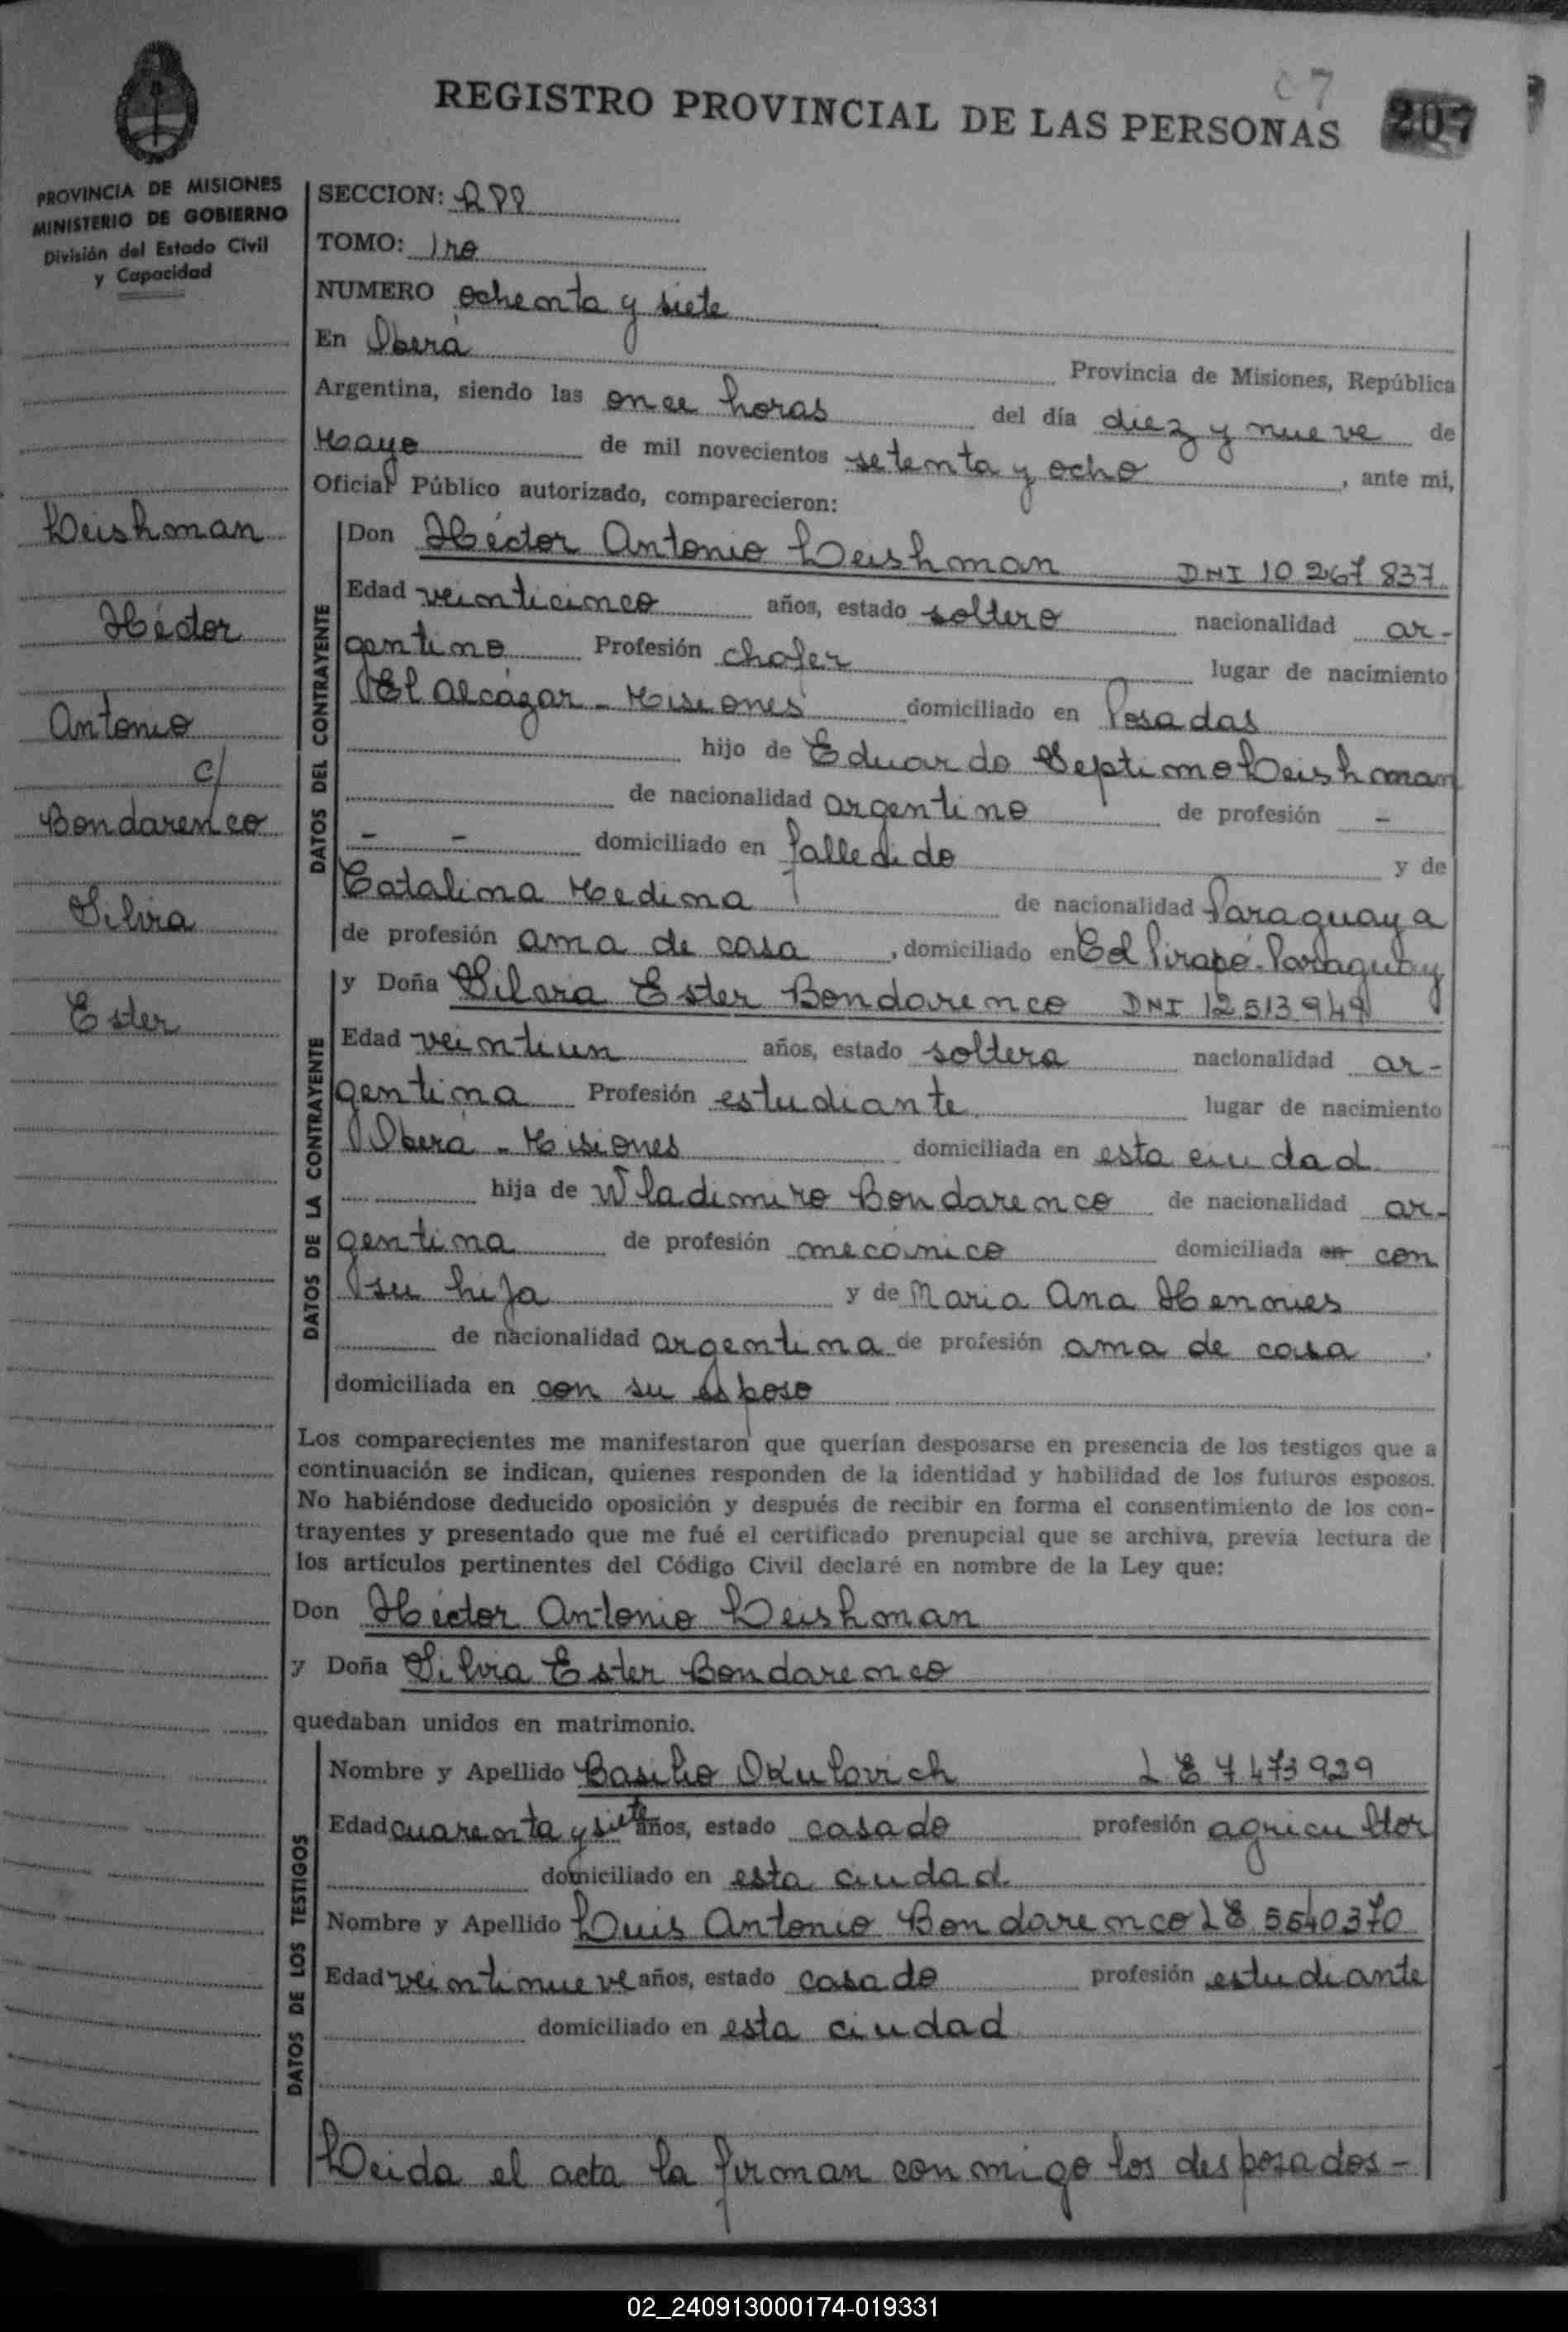 07
REGISTRO PROVINCIAL DE LAS PERSONAS 207
PROVINCIA DE MISIONES
MINISTERIO DE GOBIERNO
División del Estado Civil
y Capacidad
Leishman
Héctor
Antonio
c/
Bondarenco
Silvia
Ester
SECCION: RPP
TOMO: 1ro
NUMERO ochenta y siete
En Oberá Provincia de Misiones, República
Argentina, siendo las once horas del día diez y nueve de
Mayo de mil novecientos setenta y ocho, ante mi,
Oficial Público autorizado, comparecieron:
DATOS DEL CONTRAYENTE
Don Héctor Antonio Leishman DNI 10 267 837
Edad veinticinco años, estado soltero nacionalidad ar-
gentino Profesión chofer lugar de nacimiento
El Alcázar - Misiones domiciliado en Posadas
hijo de Eduardo Septimo Leishman
de nacionalidad argentino de profesión -
- - domiciliado en falledido y de
Catalina Medina de nacionalidad Paraguaya
de profesión ama de casa, domiciliado en Cel Pirapó-Paraguay
DATOS DE LA CONTRAYENTE
y Doña Silvia Ester Bondarenco DNI 12513949
Edad veintiun años, estado soltera nacionalidad ar-
gentina Profesión estudiante lugar de nacimiento
Oberá - Misiones domiciliada en esta ciudad
hija de Wladimiro Bondarenco de nacionalidad ar-
gentina de profesión mecánico domiciliada en con
su hija y de Maria Ana Hennies
de nacionalidad argentina de profesión ama de casa,
domiciliada en con su esposo
Los comparecientes me manifestaron que querían desposarse en presencia de los testigos que a
continuación se indican, quienes responden de la identidad y habilidad de los futuros esposos.
No habiéndose deducido oposición y después de recibir en forma el consentimiento de los con-
trayentes y presentado que me fué el certificado prenupcial que se archiva, previa lectura de
los artículos pertinentes del Código Civil declaré en nombre de la Ley que:
Don Héctor Antonio Leishman
y Doña Silvia Ester Bondarenco
quedaban unidos en matrimonio.
DATOS DE LOS TESTIGOS
Nombre y Apellido Basilio Okulovich L E 7 473 929
Edad cuarenta y siete años, estado casado profesión agricultor
domiciliado en esta ciudad
Nombre y Apellido Luis Antonio Bondarenco LE 5540370
Edad veintinueve años, estado casado profesión estudiante
domiciliado en esta ciudad
Leida el acta la firman conmigo los desposados-
02_240913000174-019331